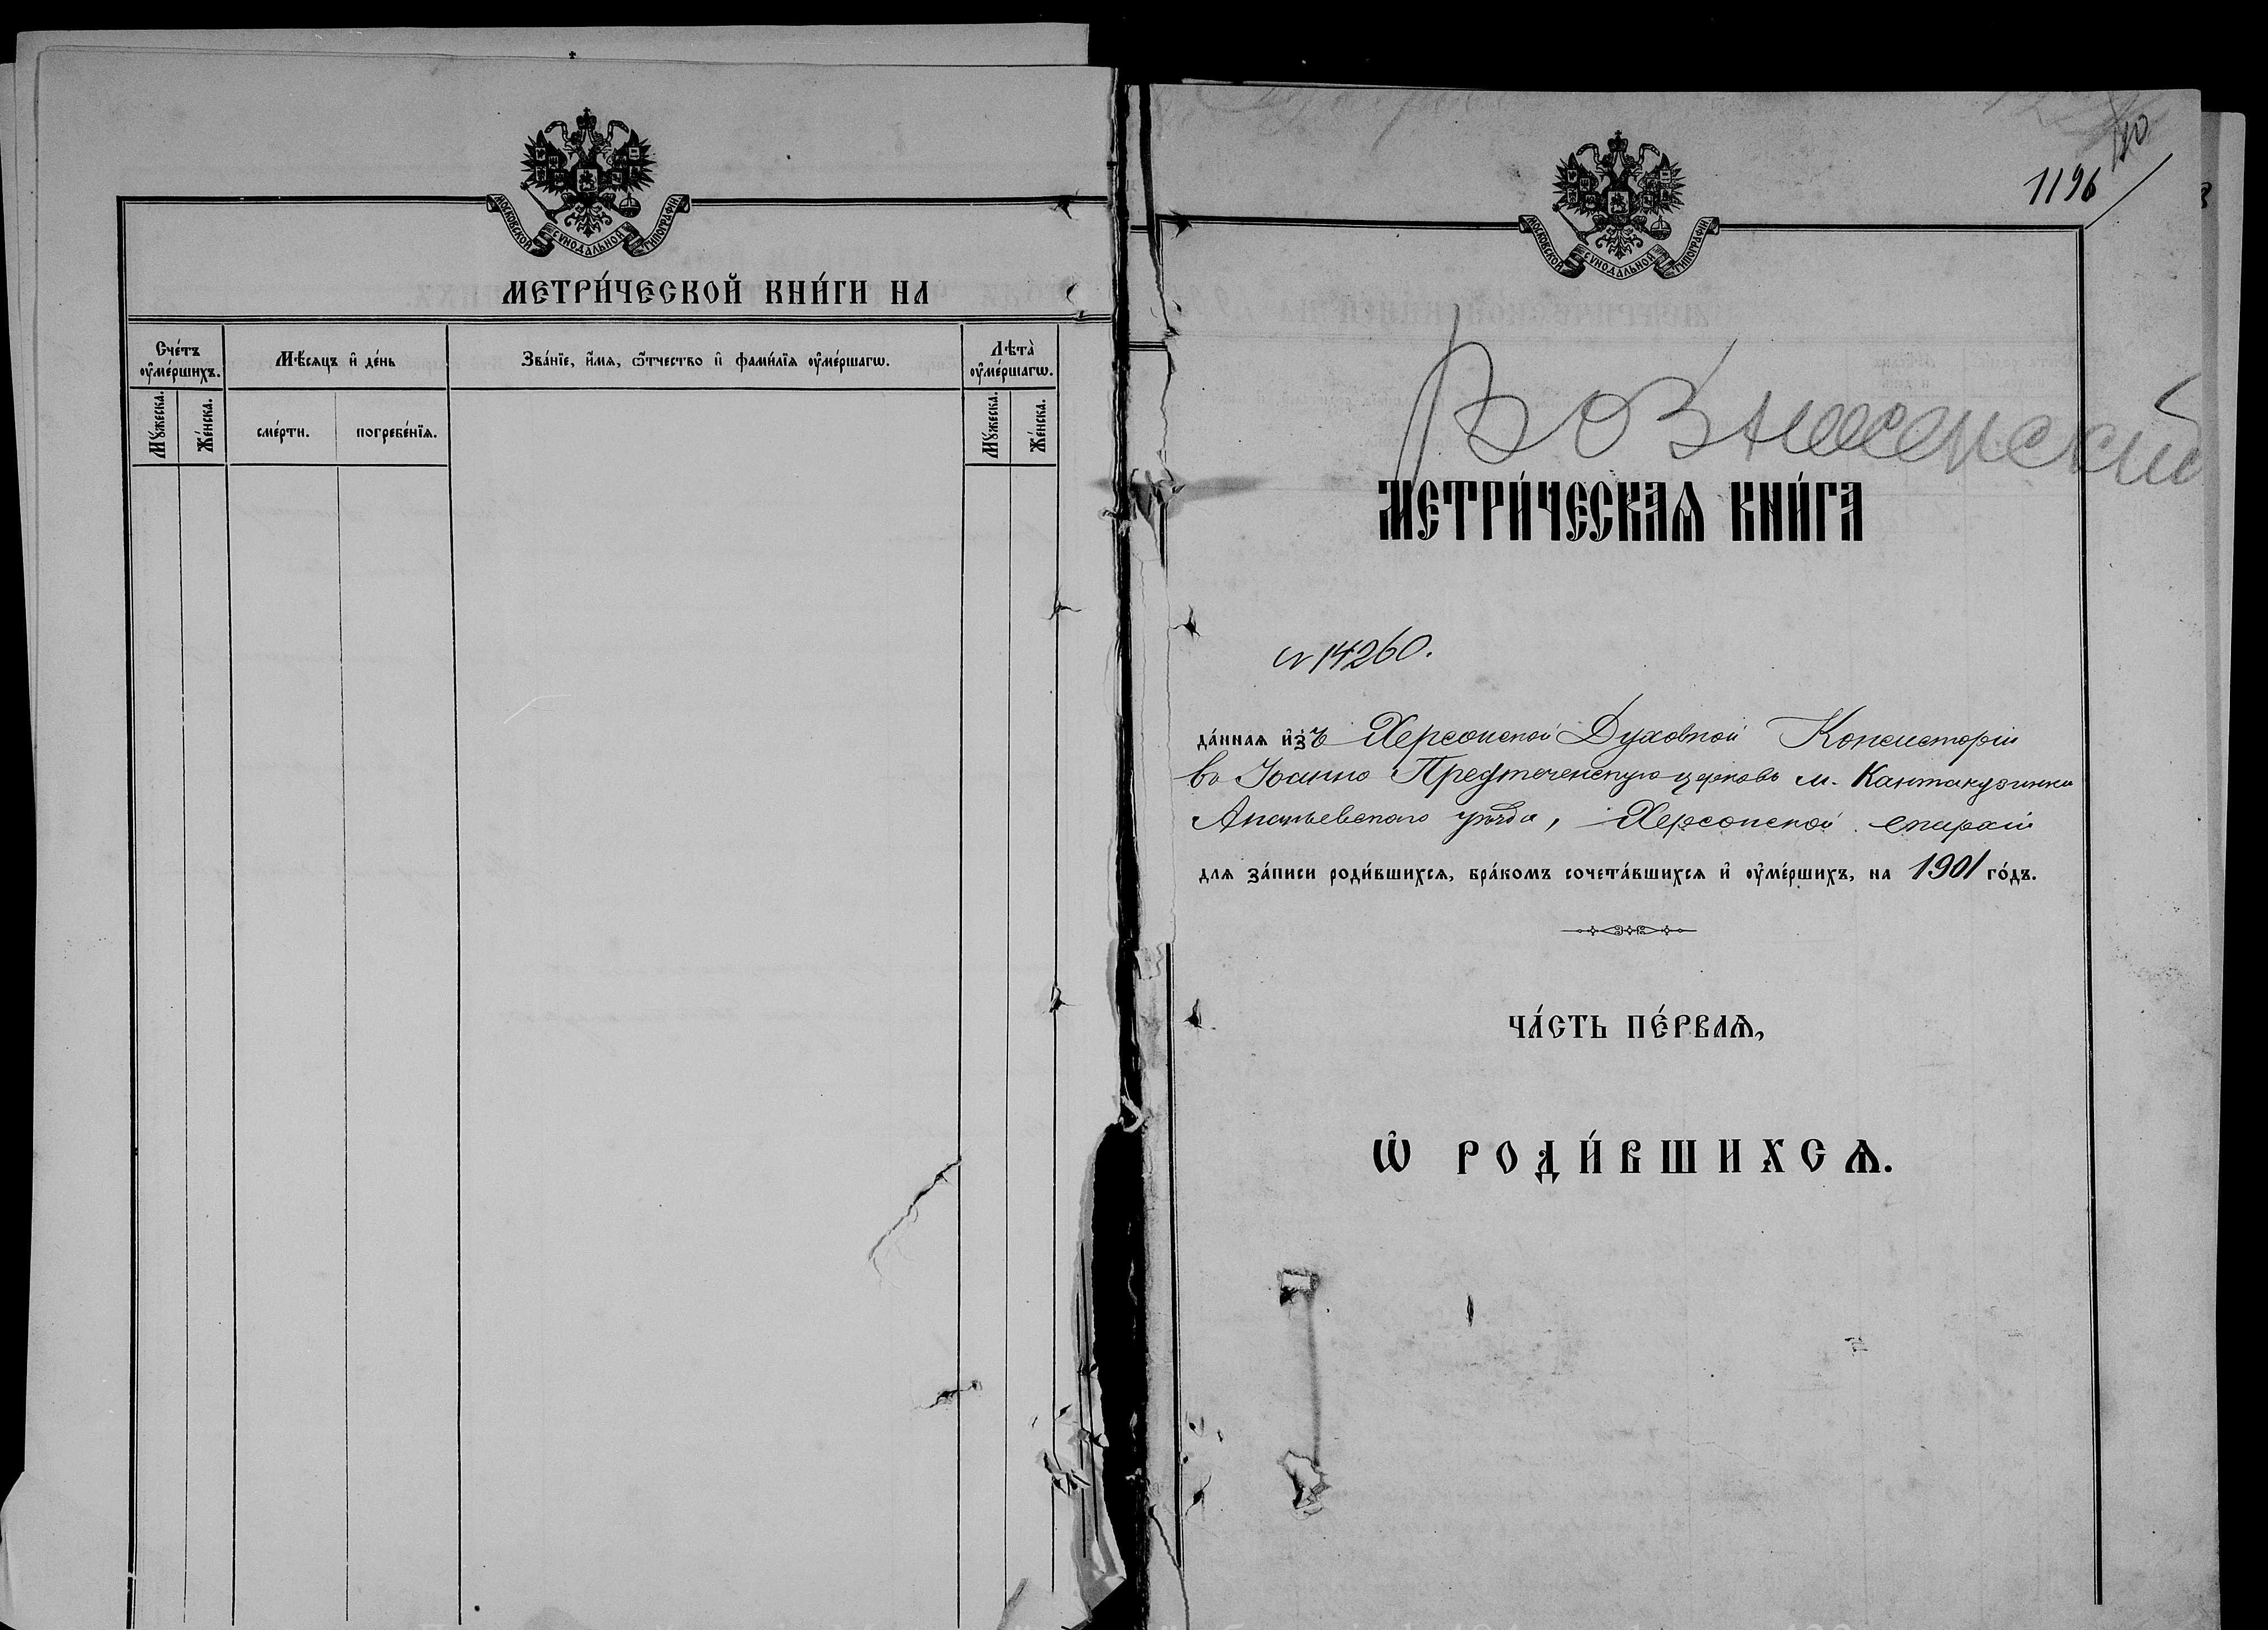 МОСКОВСКОЙ СѴНОДАЛЬНОЙ ТИПОГРАФІИ
МЕТРИ́ЧЕСКОЙ КНИ́ГИ НА
Сче́тъ ᲂу҆ме́ршихъ.
Мѣ́сяцъ и҆ де́нь
Зва́нїе, и҆́мѧ, ѻ҆́тчество и҆ фами́лїѧ ᲂу҆ме́ршагѡ.
Лѣ́та ᲂу҆ме́ршагѡ.
Мꙋ́жеска.
Же́нска.
сме́рти.
погребе́нїѧ.
Мꙋ́жеска.
Же́нска.
1196
МОСКОВСКОЙ СѴНОДАЛЬНОЙ ТИПОГРАФІИ
Вознесенский
МЕТРИ́ЧЕСКАѦ КНИ́ГА
№ 14260.
да́ннаѧ и҆зъ Херсонской Духовной Консисторіи
въ Іоанно Предтеченскую церковь м. Кантакузинки
Ананьевскаго уѣзда, Херсонской епархіи
длѧ за́писи роди́вшихсѧ, бра́комъ сочета́вшихсѧ и҆ ᲂу҆ме́ршихъ, на 1901 го́дъ.
ЧА́СТЬ ПЕ́РВАѦ,
Ѡ҆ РОДИ́ВШИХСѦ.